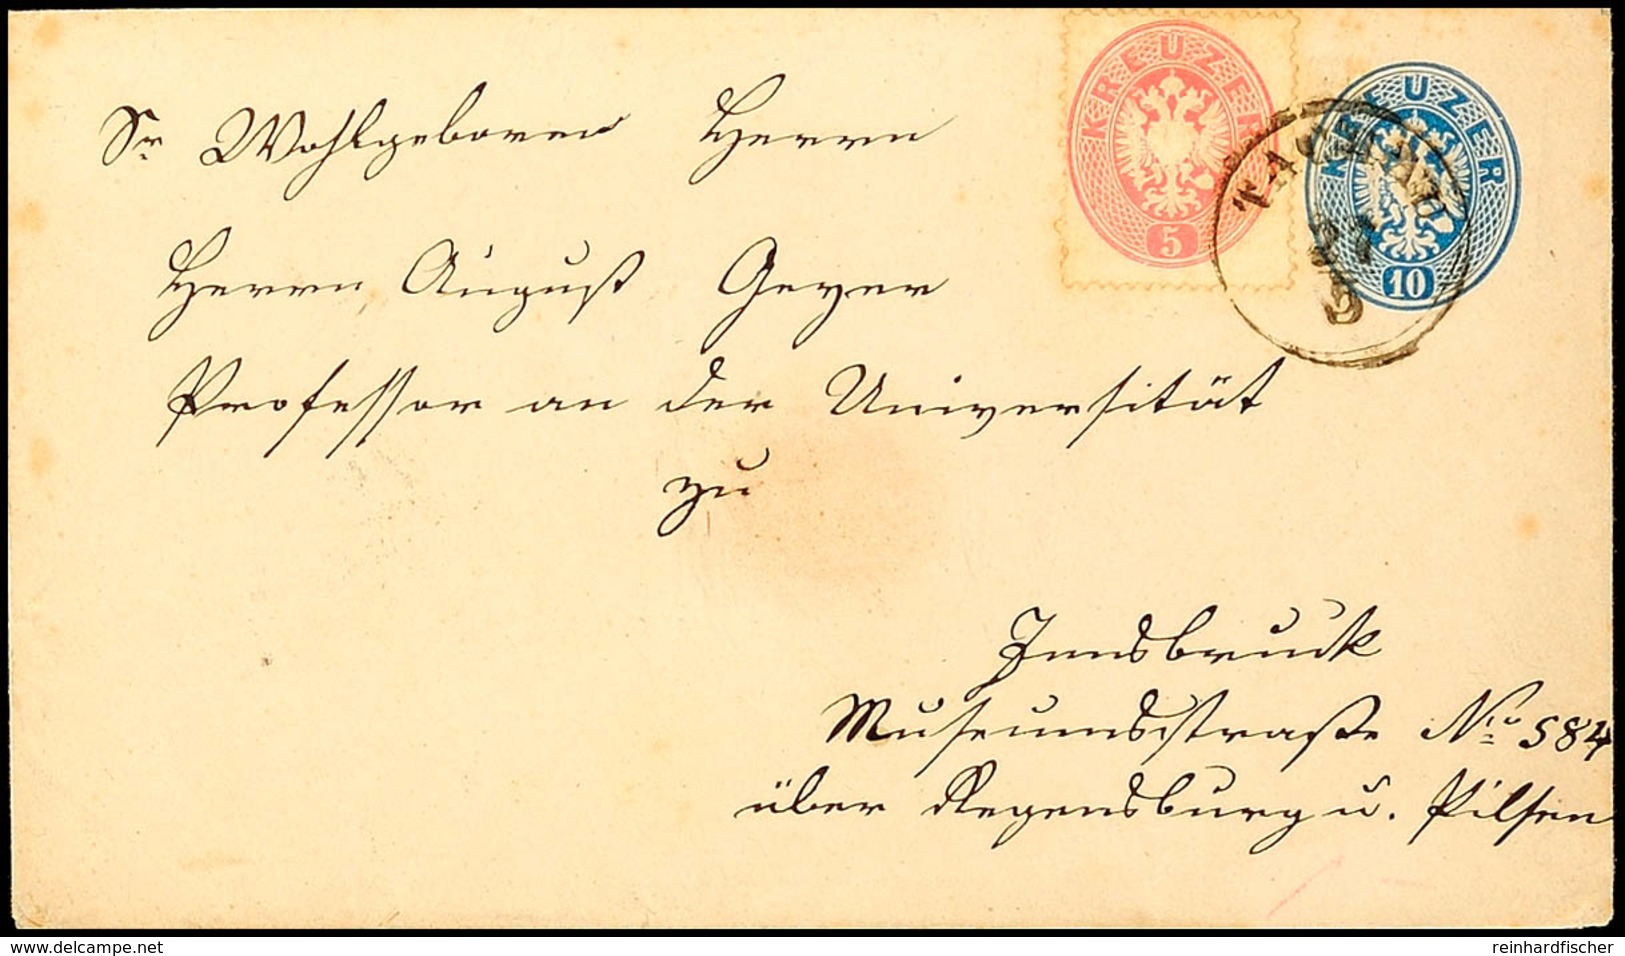 KREUZER
5
KREUZER
10
Sr Wohlgeboren Herrn
Herrn August Geyer
Professor an der Universität
zu
Innsbruck
Museumsstraße No 584
über Regensburg u. Pilsen
delcampe.net
reinhardfischer